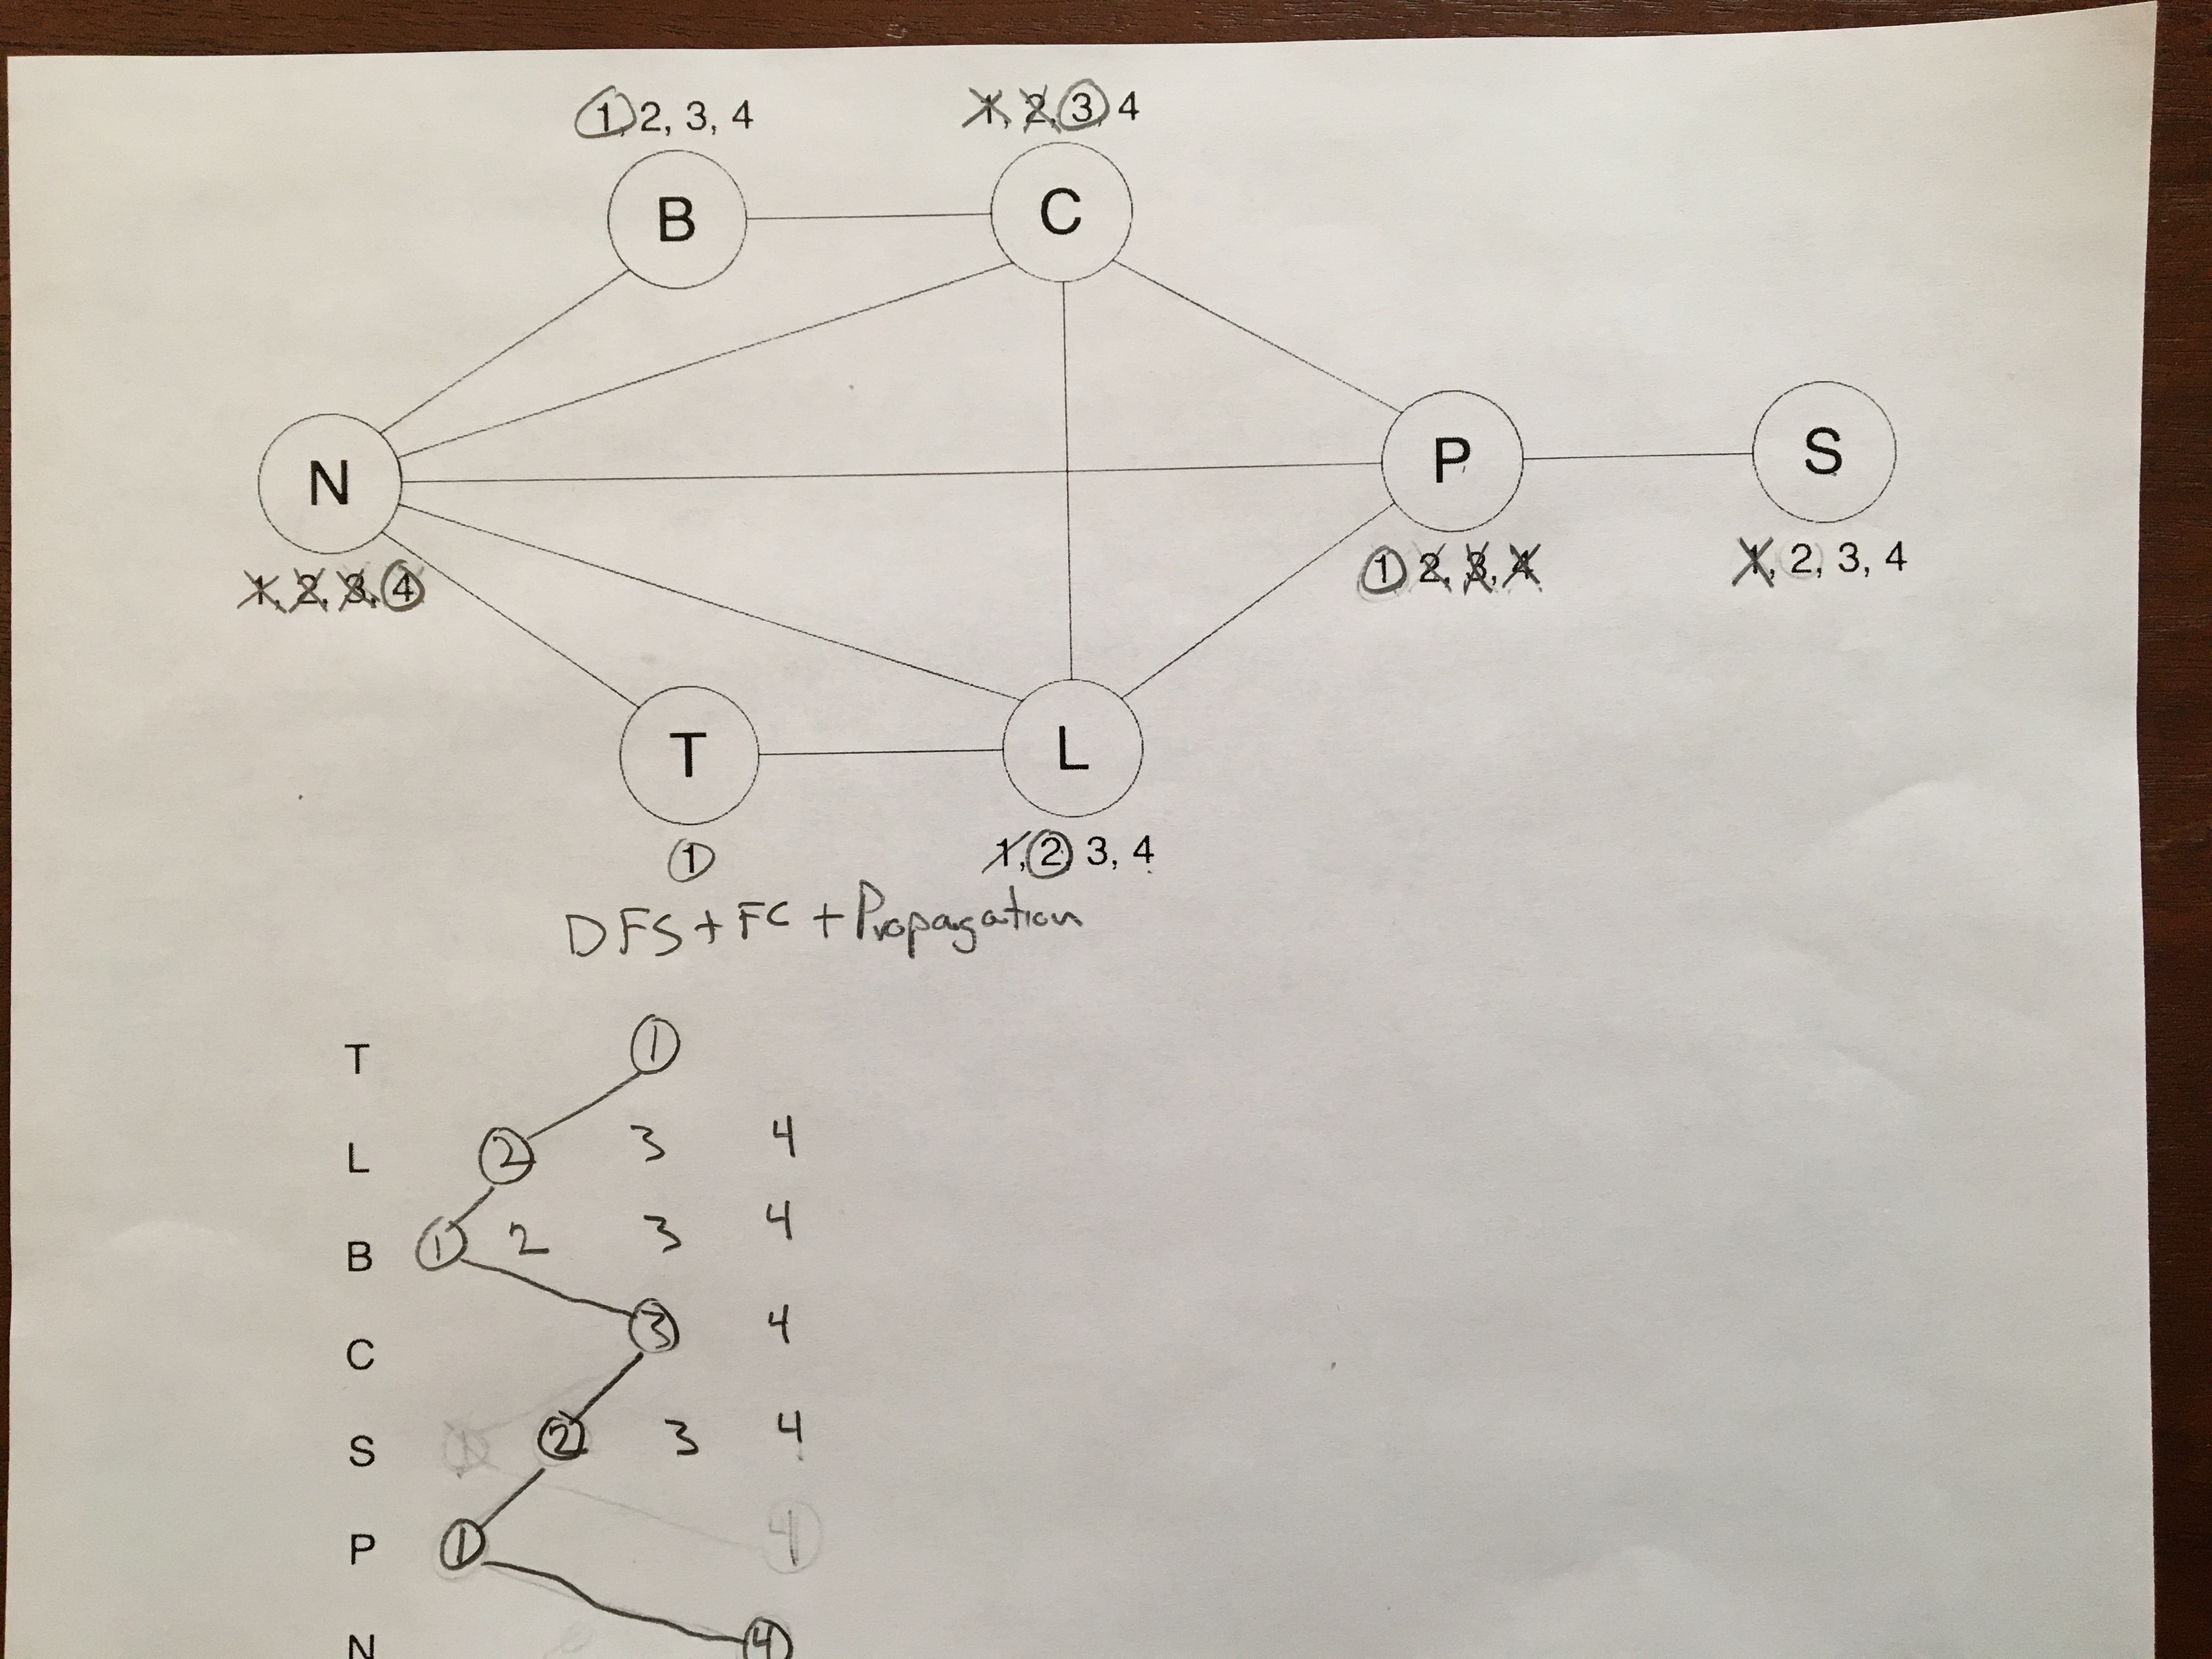 1, 2, 3, 4
1, 2, 3, 4
B
C
N
P
S
1, 2, 3, 4
1 2, 3, 4
1, 2, 3, 4
T
L
1
1, 2 3, 4
DFS + FC + Propagation
T 1
L 2 3 4
B 1 2 3 4
C 3 4
S 1 2 3 4
P 1 4
N 4